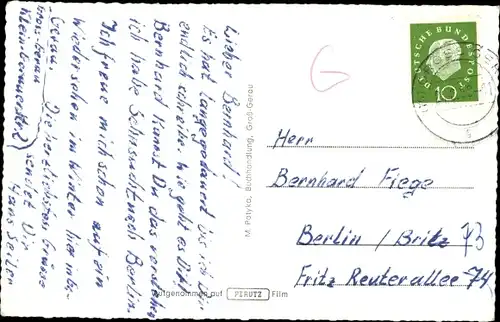 Lieber Bernhard!
Es hat lange gedauert bis ich Dir
endlich schreibe. Wie geht es Dir?
Bernhard kannst Du das verstehn
ich habe Sehnsucht nach Berlin.
Ich freue mich schon auf ein
Wiedersehen im Winter hier in
Gerau. Die herzlichsten Grüsse
sendet Dir
Gross-Gerau
Klein-Gerauerstr.
Hans
M. Patyka, Buchhandlung, Groß-Gerau
Aufgenommen auf PERUTZ Film
DEUTSCHE BUNDESPOST
10
G
Herrn
Bernhard Fiege
Berlin / Britz
Fritz Reuterallee 74